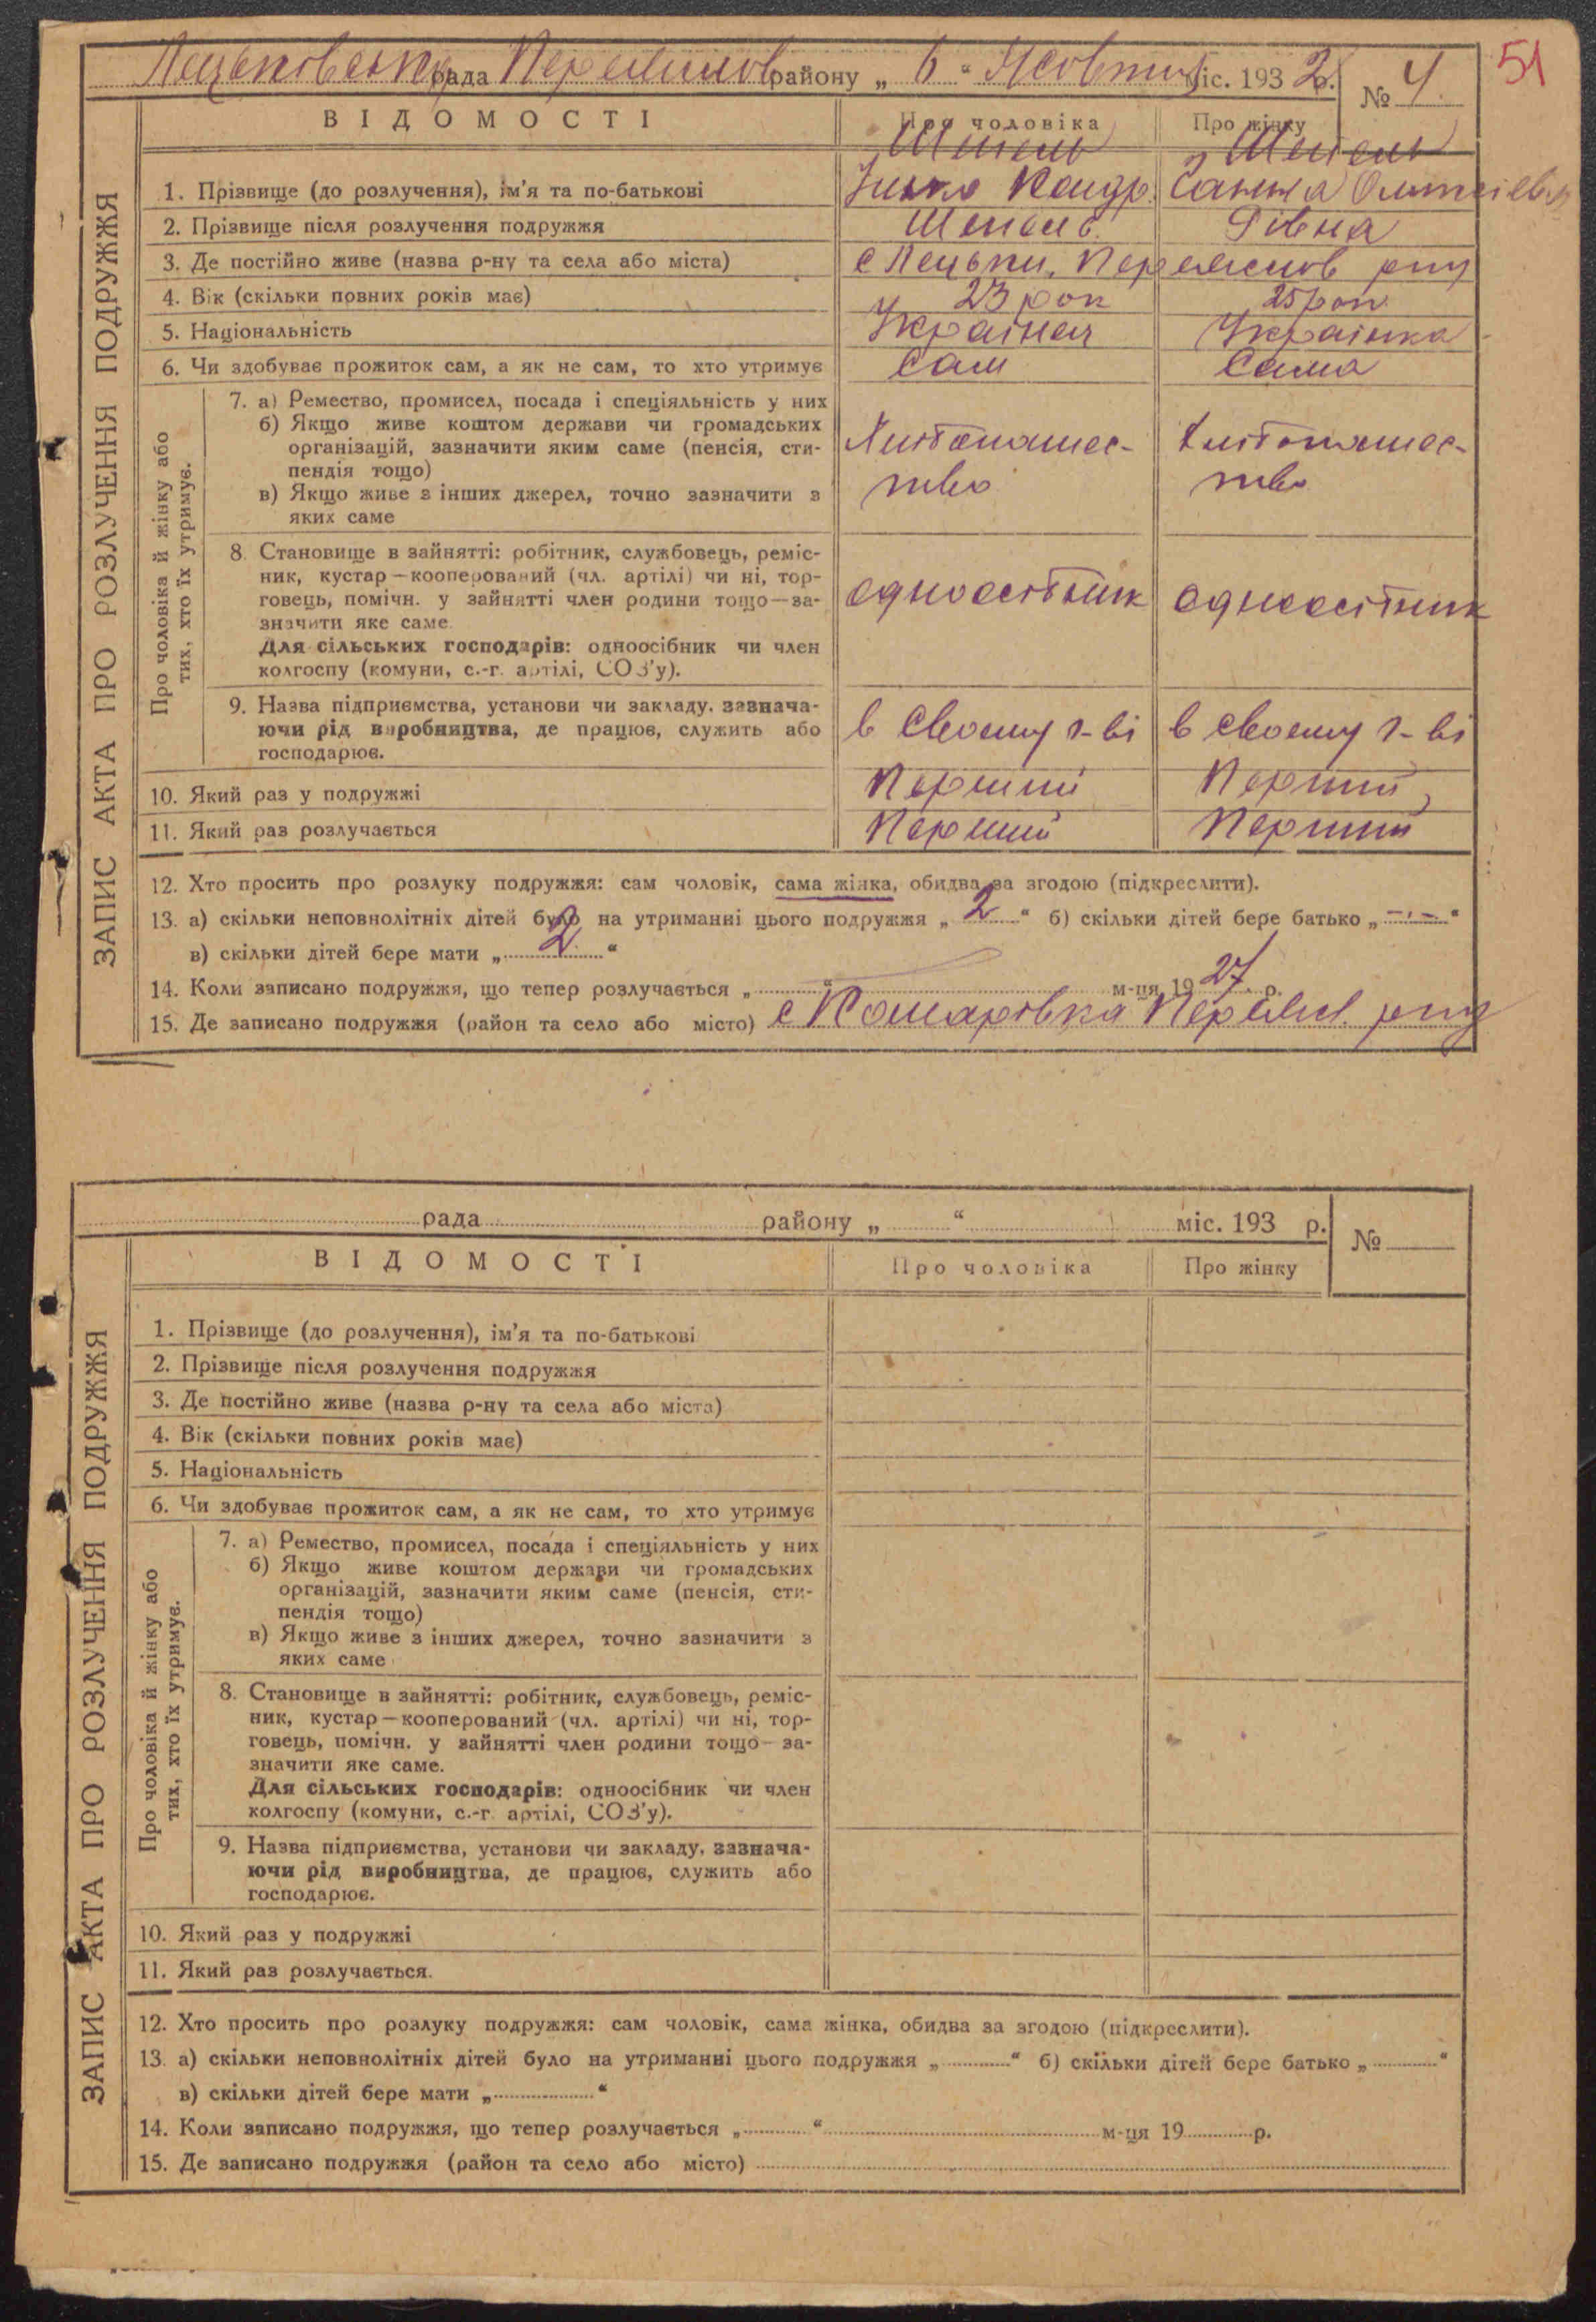 51
рада району „ 6 “ Жовтня міс. 193 2 р. № 4
ВІДОМОСТІ Про чоловіка Про жінку
Шепель Шепель
1. Прізвище (до розлучення), ім'я та по-батькові Ганна
2. Прізвище після розлучення подружжя Шепель Рівна
3. Де постійно живе (назва р-ну та села або міста) с
4. Вік (скільки повних років має) 23 рок 25 рок
5. Національність Українец Українка
6. Чи здобуває прожиток сам, а як не сам, то хто утримує Сам Сама
7. а) Ремество, промисел, посада і спеціяльність у них
б) Якщо живе коштом держави чи громадських
організацій, зазначити яким саме (пенсія, сти- Хлібопашес- Хлібопашес-
пендія тощо) тво тво
в) Якщо живе з інших джерел, точно зазначити з
яких саме
8. Становище в зайнятті: робітник, службовець, реміс-
ник, кустар—кооперований (чл. артілі) чи ні, тор-
говець, помічн. у зайнятті член родини тощо—за- одноосібник одноосібник
значити яке саме.
Для сільських господарів: одноосібник чи член
колгоспу (комуни, с.-г. артілі, СОЗ'у).
9. Назва підприємства, установи чи закладу, зазнача-
ючи рід виробництва, де працює, служить або в своему г-ві в своему г-ві
господарює.
10. Який раз у подружжі Перший Перший
11. Який раз розлучається Перший Перший
12. Хто просить про розлуку подружжя: сам чоловік, сама жінка, обидва за згодою (підкреслити).
13. а) скільки неповнолітніх дітей було на утриманні цього подружжя „ 2 “ б) скільки дітей бере батько „ — “
в) скільки дітей бере мати „ 2 “
14. Коли записано подружжя, що тепер розлучається „ “ м-ця 19 27 р.
15. Де записано подружжя (район та село або місто) с Комарівка
ЗАПИС АКТА ПРО РОЗЛУЧЕННЯ ПОДРУЖЖЯ
Про чоловіка й жінку або
тих, хто їх утримує.
рада району „ “ міс. 193 р. №
ВІДОМОСТІ Про чоловіка Про жінку
1. Прізвище (до розлучення), ім'я та по-батькові
2. Прізвище після розлучення подружжя
3. Де постійно живе (назва р-ну та села або міста)
4. Вік (скільки повних років має)
5. Національність
6. Чи здобуває прожиток сам, а як не сам, то хто утримує
7. а) Ремество, промисел, посада і спеціяльність у них
б) Якщо живе коштом держави чи громадських
організацій, зазначити яким саме (пенсія, сти-
пендія тощо)
в) Якщо живе з інших джерел, точно зазначити з
яких саме
8. Становище в зайнятті: робітник, службовець, реміс-
ник, кустар—кооперований (чл. артілі) чи ні, тор-
говець, помічн. у зайнятті член родини тощо—за-
значити яке саме.
Для сільських господарів: одноосібник чи член
колгоспу (комуни, с.-г. артілі, СОЗ'у).
9. Назва підприємства, установи чи закладу, зазнача-
ючи рід виробництва, де працює, служить або
господарює.
10. Який раз у подружжі
11. Який раз розлучається.
12. Хто просить про розлуку подружжя: сам чоловік, сама жінка, обидва за згодою (підкреслити).
13. а) скільки неповнолітніх дітей було на утриманні цього подружжя „ “ б) скільки дітей бере батько „ “
в) скільки дітей бере мати „ “
14. Коли записано подружжя, що тепер розлучається „ “ м-ця 19 р.
15. Де записано подружжя (район та село або місто)
ЗАПИС АКТА ПРО РОЗЛУЧЕННЯ ПОДРУЖЖЯ
Про чоловіка й жінку або
тих, хто їх утримує.